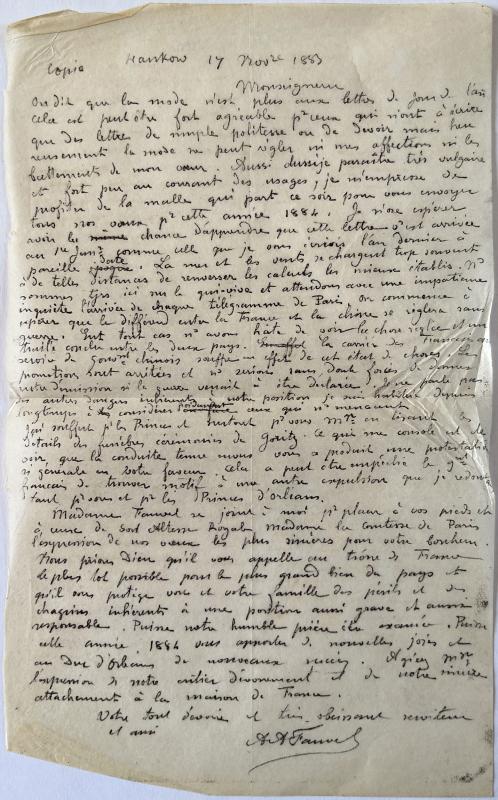 Copie Hankow 17 Novre 1883
Monseigneur
On dit que la mode n'est plus aux lettres de jour de l'an
cela est peut être fort agréable pr ceux qui n'ont à écrire
que des lettres de simple politesse ou de devoir mais heu
reusement la mode ne peut régler ni mes affections ni les
battements de mon cœur. Aussi dussé-je paraître très vulgaire
et fort peu au courant des usages, je m'empresse de
profiter de la malle qui part ce soir pour vous envoyer
tous nos vœux pr cette année 1884. Je n'ose espérer
avoir la même chance d'apprendre que cette lettre est arrivée
au 1er janv. comme celle que je vous écrivis l'an dernier à
pareille date. La mer et les vents se chargent trop souvent
à de telles distances de renverser les calculs les mieux établis. Ns
sommes tjrs ici sur le qui-vive et attendons avec une impatience
inquiète l'arrivée de chaque télégramme de Paris, on commence à
espérer que le différend entre la France et la Chine se règlera sans
guerre. En tout cas ns avons hâte de voir la chose réglée et un
traité conclu entre les deux pays. La carrière des Français au
service du Gouvt chinois souffre en effet de cet état de choses, les
promotions sont arrêtées et ns serions sans doute forcés de donner
notre démission si la guerre venait à être déclarée. Je ne parle pas
des autres dangers inhérents à notre position je suis habitué depuis
longtemps à les considérer ceux qui ns menacent
J'ai souffert pr les Princes et surtout pr vous Mgr en lisant les
détails des funèbres cérémonies de Goritz. Ce qui me console est de
voir que la conduite tenue par vous a produit une protestation
si générale en votre faveur. Cela a peut être empêché le gvt
français de trouver motif à une autre expulsion que je redoute
tant pr vous et pr les Princes d'Orléans.
Madame Fauvel se joint à moi pr placer à vos pieds et
à ceux de Son Altesse Royale Madame la Comtesse de Paris
l'expression de nos vœux les plus sincères pour votre bonheur.
Nous prions Dieu qu'il vous appelle au trône de France
le plus tôt possible pour le plus grand bien du pays et
qu'il vous protège vous et votre famille des périls et des
chagrins inhérents à une position aussi grave et aussi
responsable. Puisse notre humble prière être exaucée. Puisse
cette année 1884 vous apporter de nouvelles joies et
au Duc d'Orléans de nouveaux succès. Agréez Mgr
l'expression de notre entier dévouement et de notre sincère
attachement à la maison de France.
Votre tout dévoué et très obéissant serviteur
et ami A A Fauvel